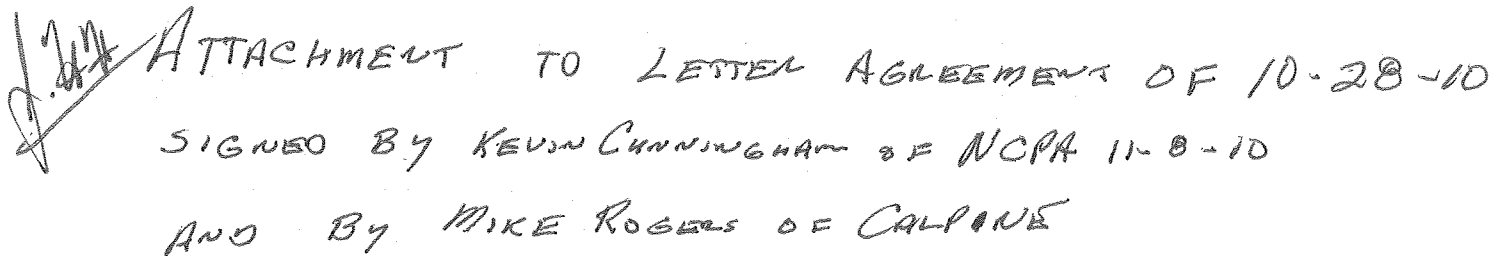 ATTACHMENT TO LETTER AGREEMENT OF 10-28-10
SIGNED BY KEVIN CUNNINGHAM OF NCPA 11-8-10
AND BY MIKE ROGERS OF CALPINE